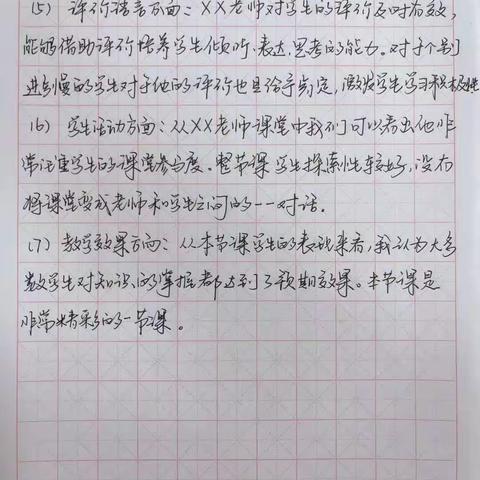 (5) 评价语言方面：XX老师对学生的评价及时有效，
能够借助评价培养学生倾听、表达、思考的能力。对于个别
进步慢的学生对于他的评价也且给予肯定，激发学生学习积极性
(6) 学生活动方面：从XX老师课堂中我们可以看出他非
常注重学生的课堂参与度。整节课学生探索性较好，没有
将课堂变成老师和学生之间的一一对话。
(7) 教学效果方向：从本节课学生的表现来看，我认为大多
数学生对知识的掌握都达到了预期效果。本节课是
非常精彩的一节课。